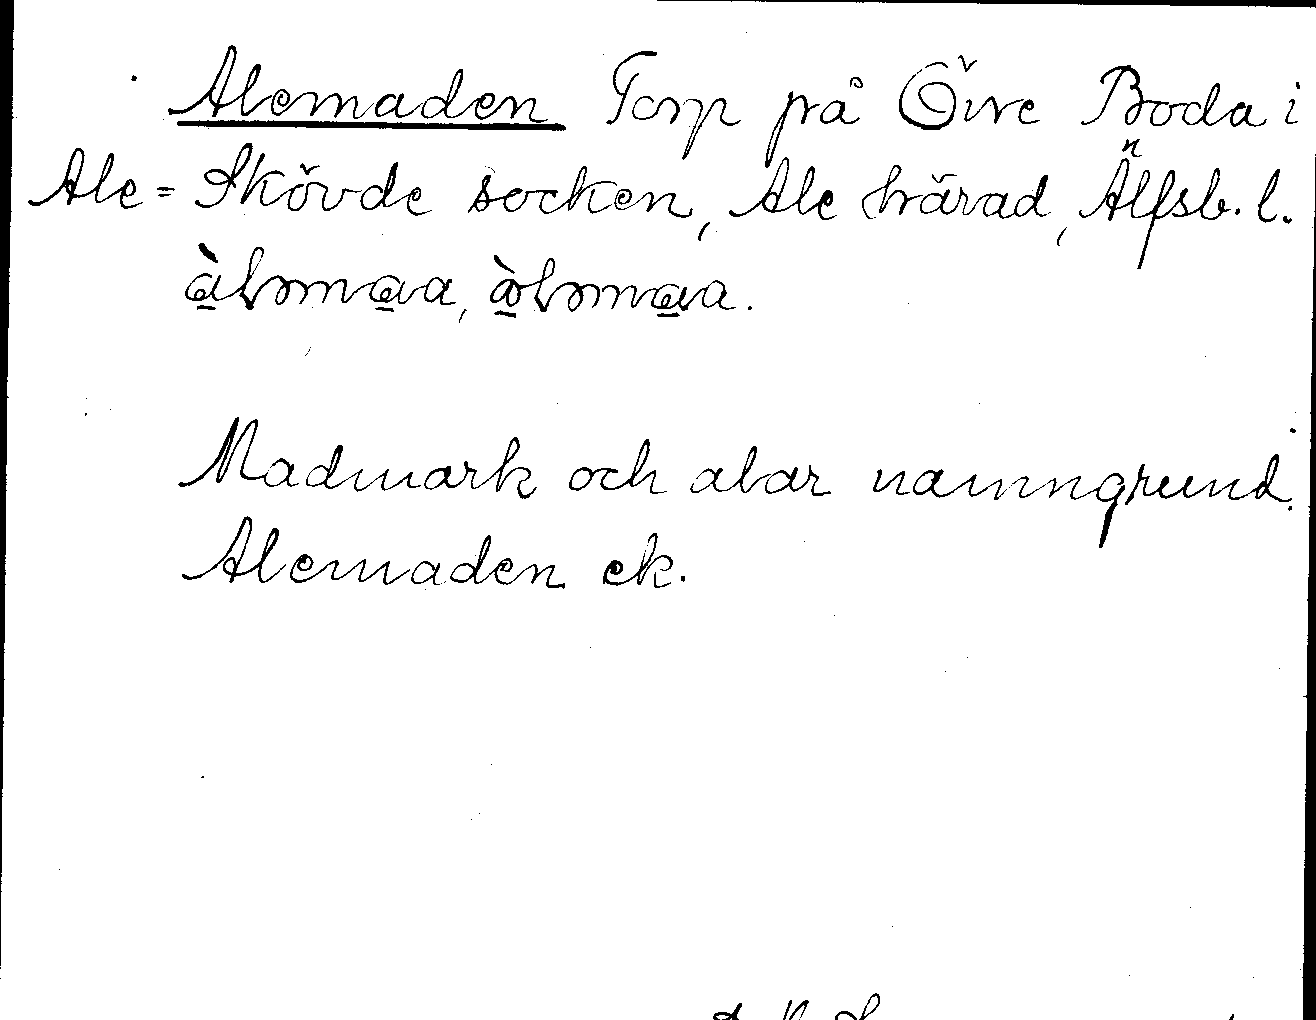 Alemaden Torp på Övre Boda i
Ale=Skövde socken, Ale härad, Älfsb. l.
àlɘmɑɑ, òlɘmɑɑ.
Madmark och alar namngrund.
Alemaden ek.